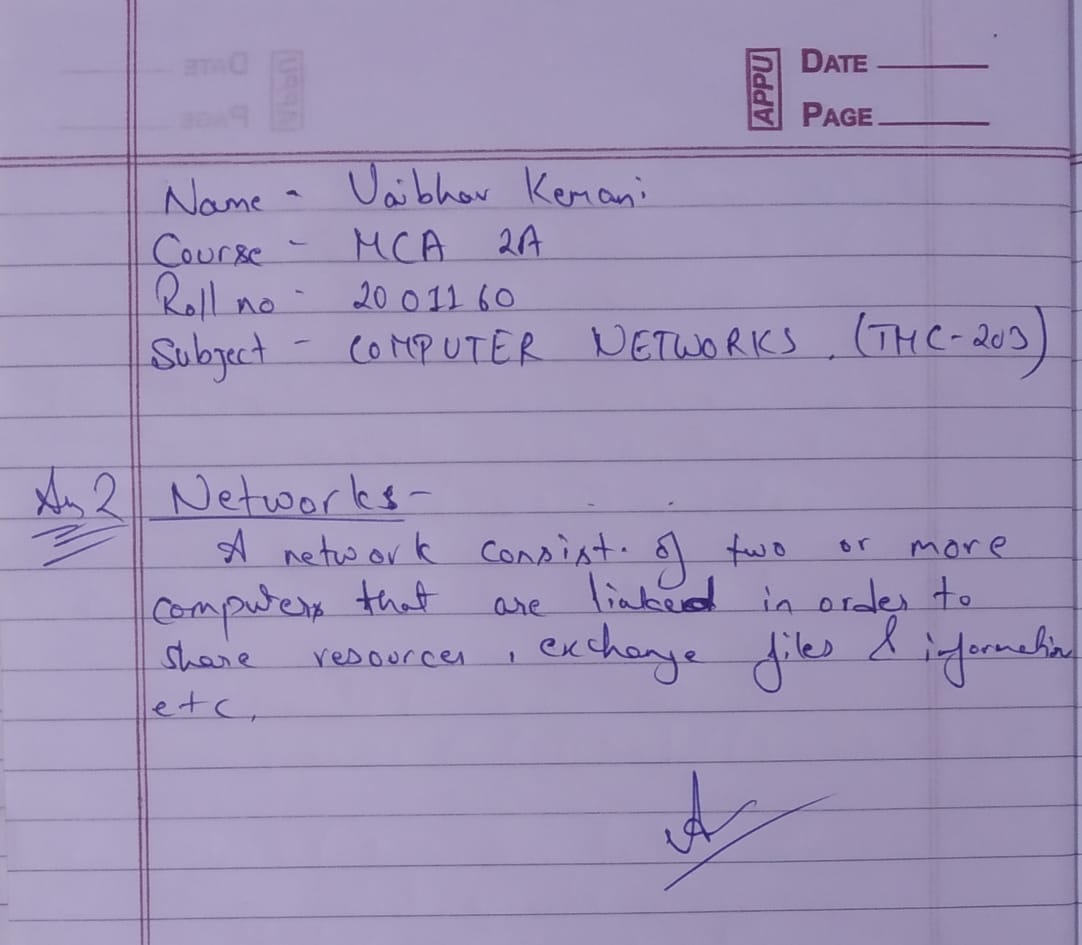 APPU DATE
PAGE
Name - Vaibhav Kemani
Course - MCA 2A
Roll no - 2001160
Subject - COMPUTER NETWORKS. (TMC-203)
Ans 2 Networks-
A network consist. of two or more
computers that are linked in order to
share resources, exchange files & information
etc.